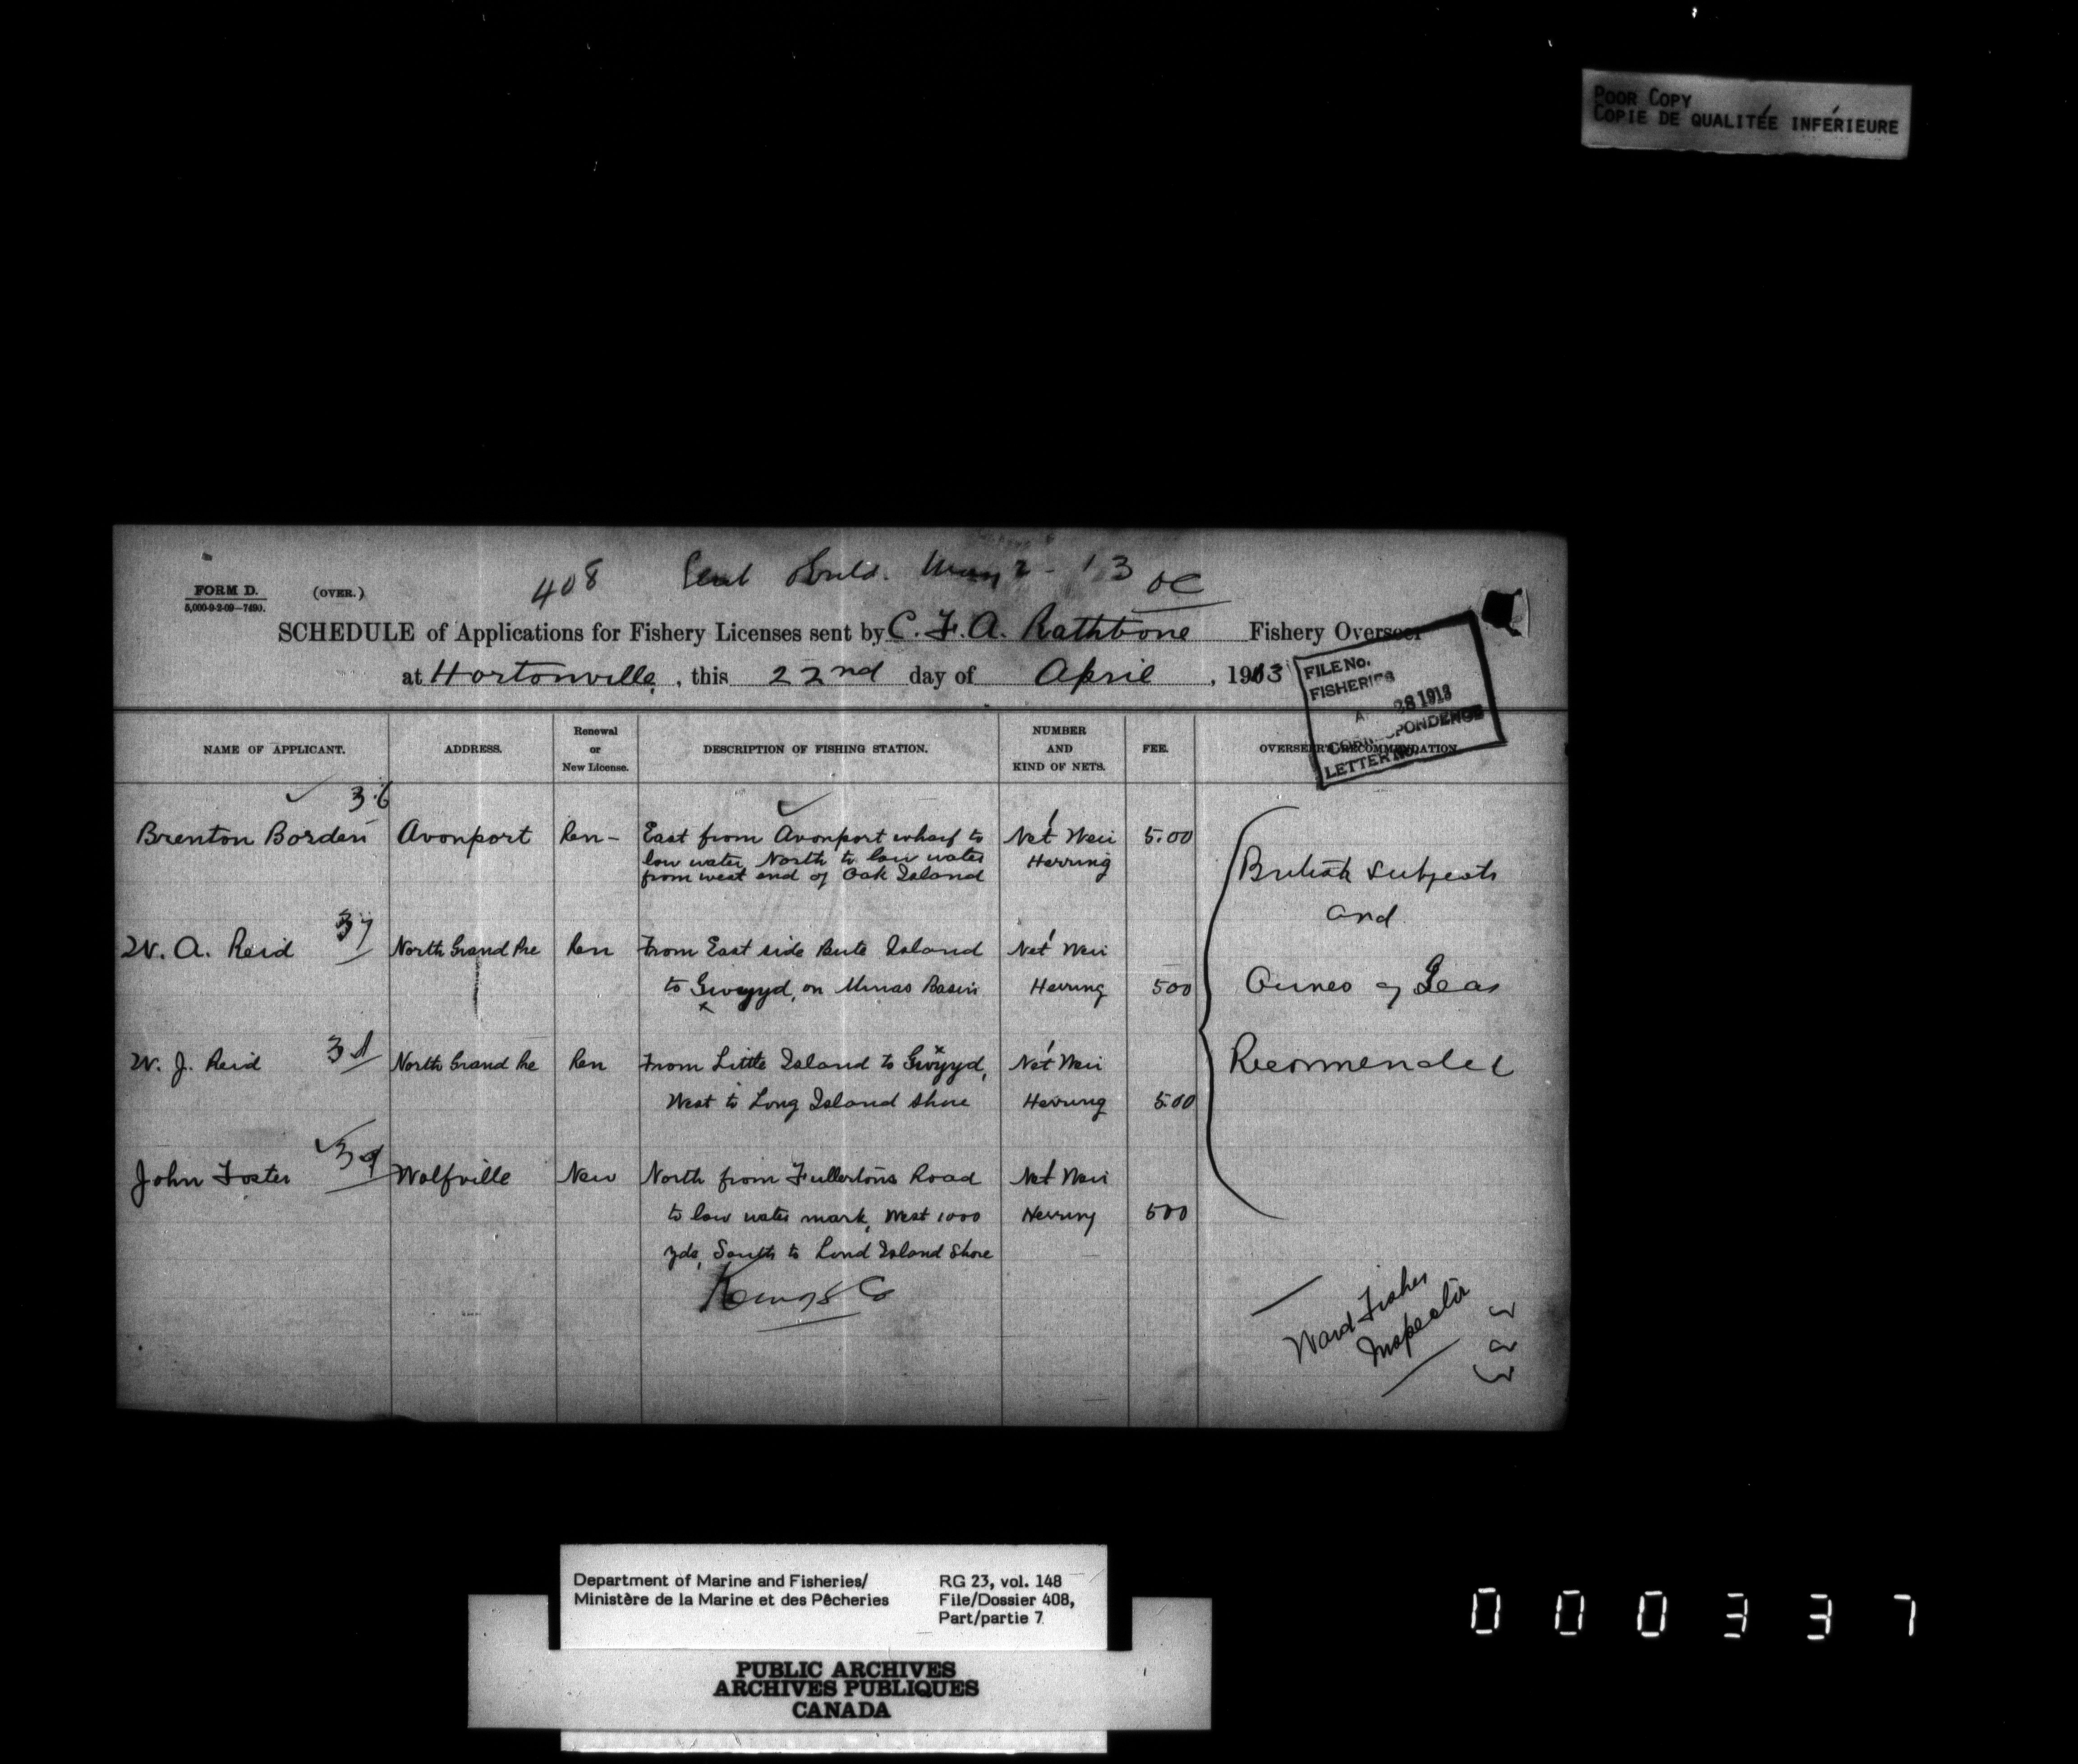 POOR COPY
COPIE DE QUALITÉE INFÉRIEURE
FORM D. (OVER.) 408 May 2 - 13
5,000-9-2-09—7490.
SCHEDULE of Applications for Fishery Licenses sent by C. F. A. Rathbone Fishery Overseer
at Hortonville, this 22nd day of April, 1913
FILE No.
FISHERIES
28 1913
CORRESPONDENCE
LETTER No.
NAME OF APPLICANT. ADDRESS. Renewal or New License. DESCRIPTION OF FISHING STATION. NUMBER AND KIND OF NETS. FEE. OVERSEER'S RECOMMENDATION.
36
Brenton Borden Avonport Ren- East from Avonport wharf to 1 Net Weir 5.00
low water, North to low water Herring
from west end of Oak Island
37
W. A. Reid North Grand Pre Ren From East side Island 1 Net Weir
to on Minas Basin Herring 500
38
W. J. Reid North Grand Pre Ren From Little Island to 1 Net Weir
West to Long Island shore Herring 5.00
39
John Foster Wolfville New North from Fullertons Road 1 Net Weir
to low water mark, West 1000 Herring 500
yds, South to Lond Island Shore
Kings Co
British subjects
and
of
Recommended
Ward Fisher
Inspector
Department of Marine and Fisheries/
Ministère de la Marine et des Pêcheries
RG 23, vol. 148
File/Dossier 408,
Part/partie 7
PUBLIC ARCHIVES
ARCHIVES PUBLIQUES
CANADA
000337